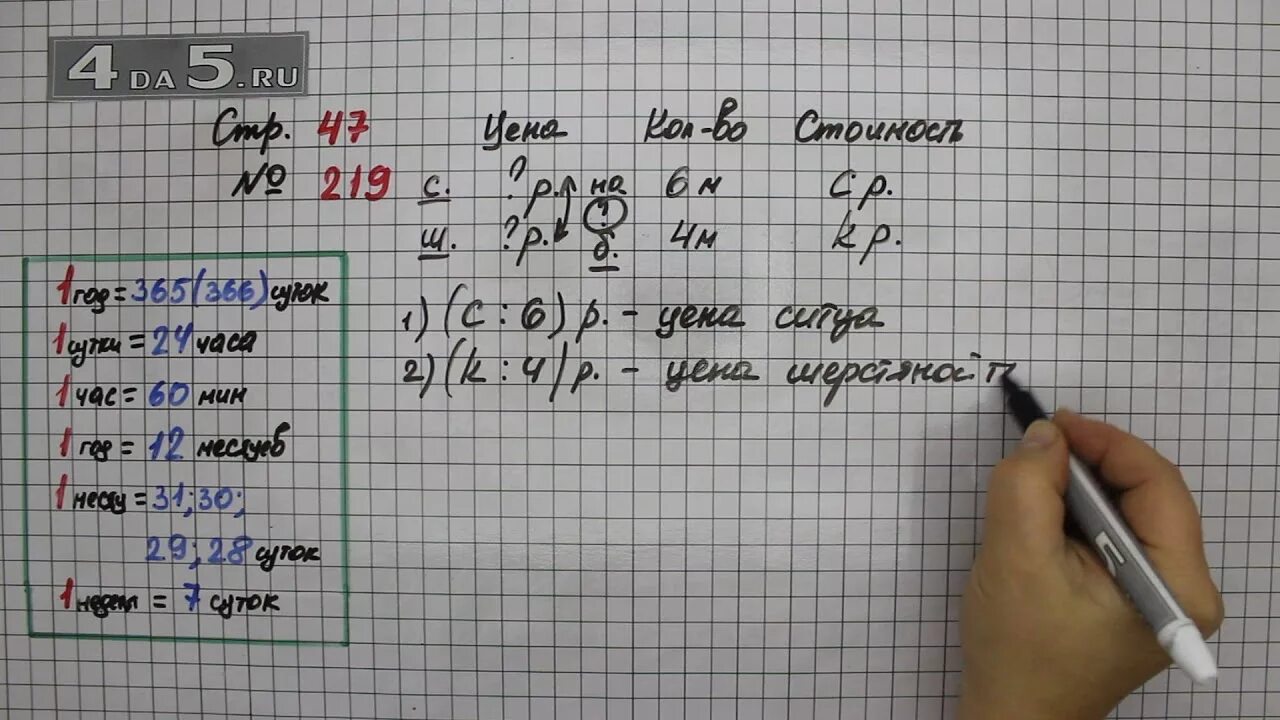 4DA5.RU
Стр. 47 Цена Кол-во Стоимость
№ 219 с. ? р. на 6 м с р.
?
ш. ? р. б. 4 м k р.
1 год = 365 (366) суток
1 сутки = 24 часа
1 час = 60 мин
1 год = 12 месяцев
1 месяц = 31; 30;
29; 28 суток
1 недел = 7 суток
1) (с : 6) р. - цена ситца
2) (k : 4) р. - цена шерстяной т